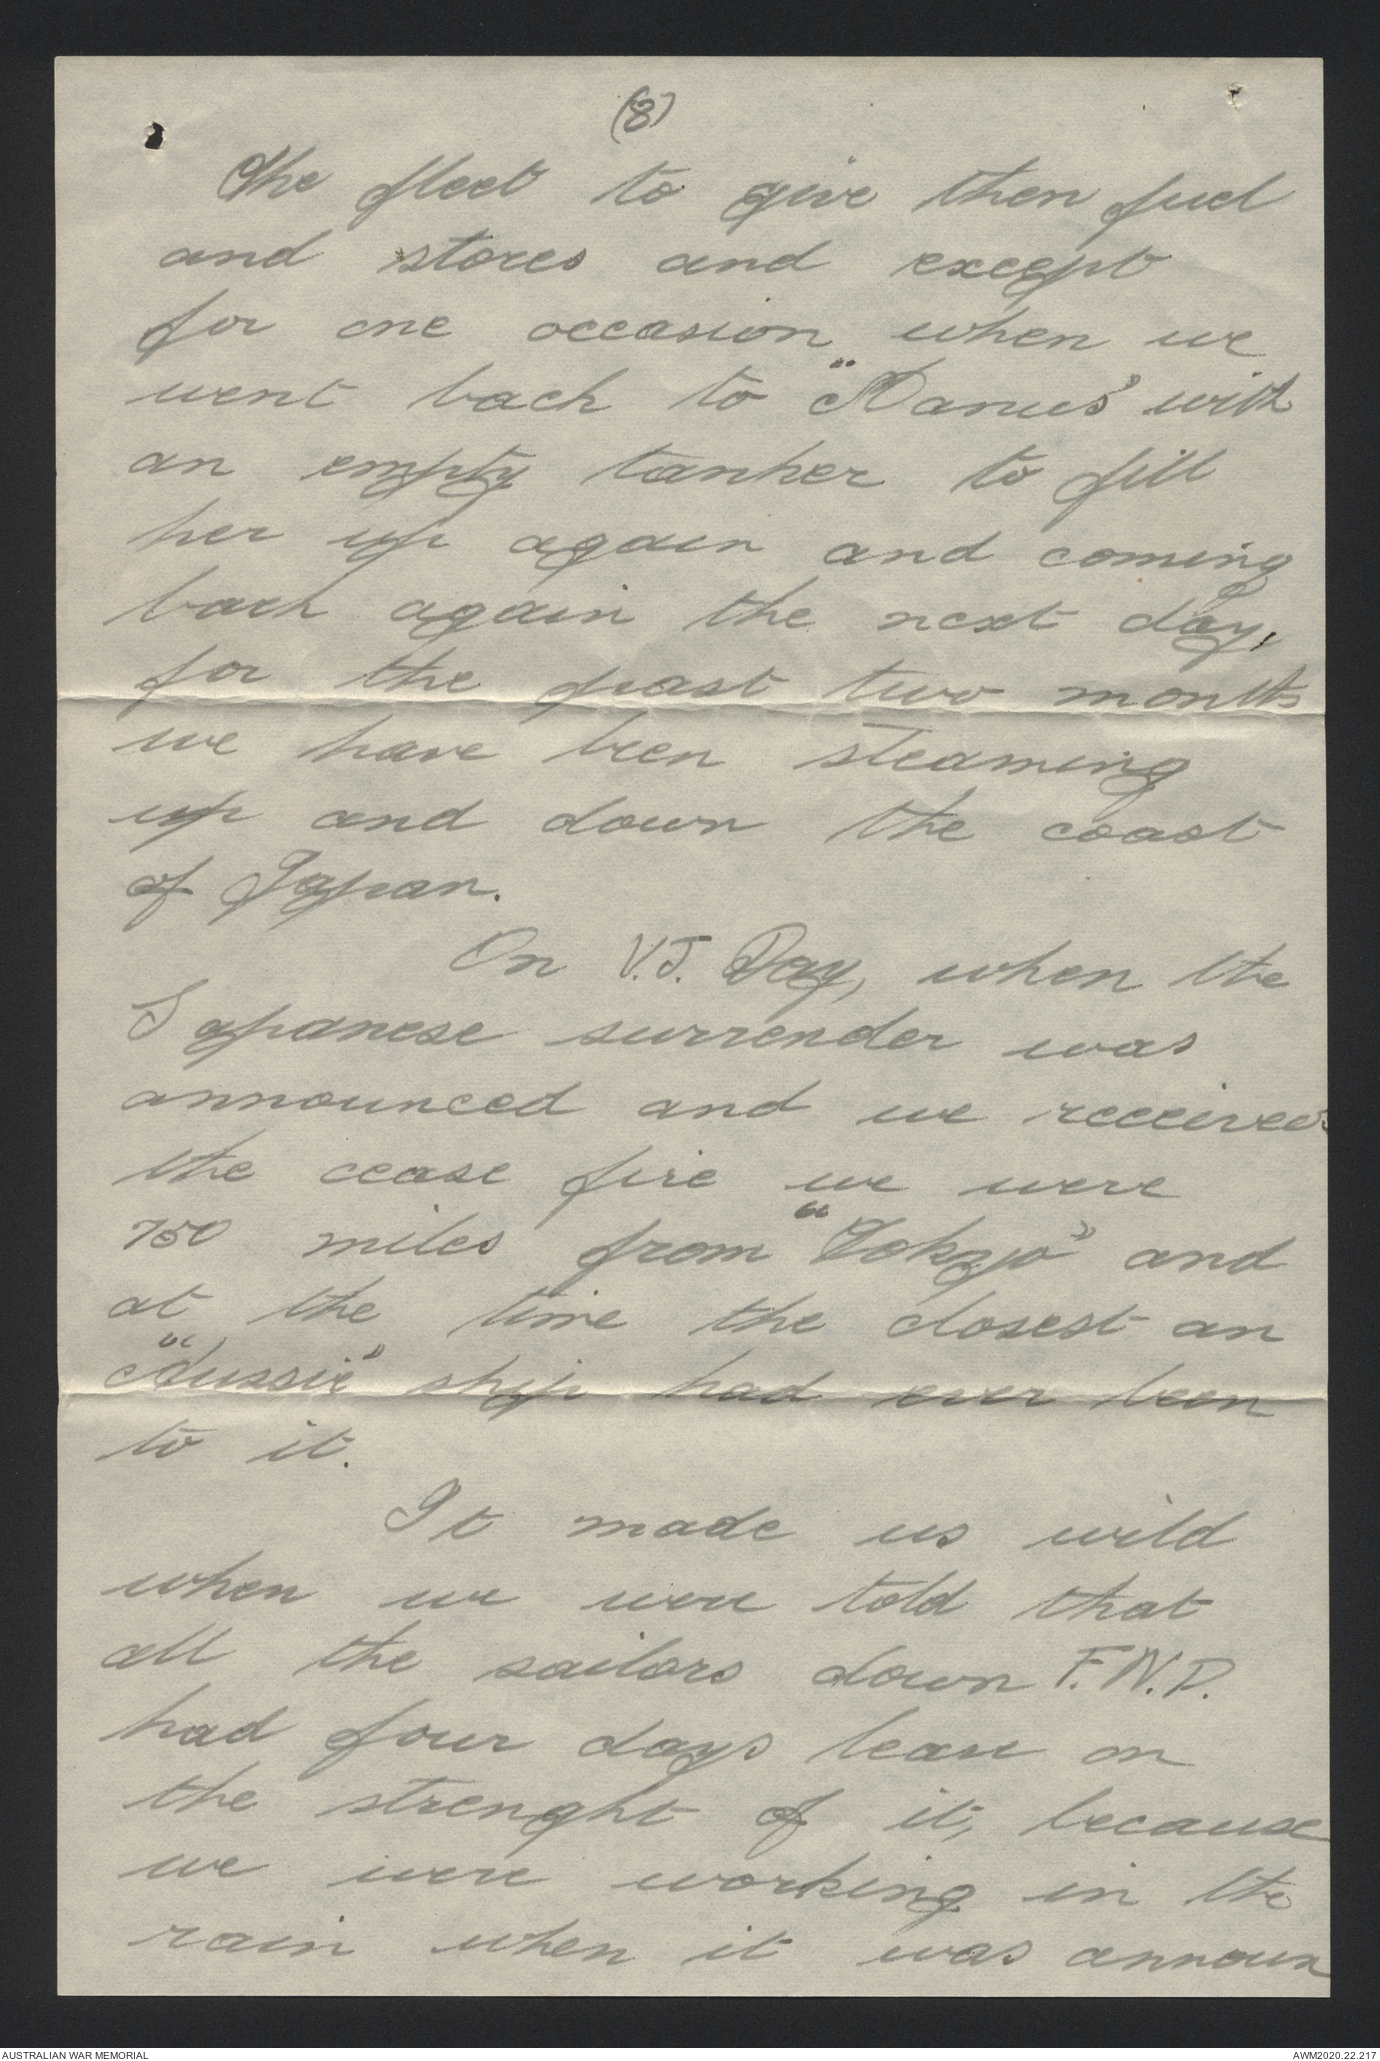 (8)
The fleet to give then fuel
and stores and except
for one occasion when we
went back to "Manus" with
an empty tanker to fill
her up again and coming
back again the next day,
for the past two months
we have been steaming
up and down the coast
of Japan.
On V.J. Day, when the
Japanese surrender was
announced and we received
the cease fire we were
750 miles from "Tokyo" and
at the time the closest an
"Aussie" ship had ever been
to it.
It made us wild
when we were told that
all the sailors down F.N.D.
had four days leave on
the strenght of it, because
we were working in the
rain when it was announ
AUSTRALIAN WAR MEMORIAL
AWM2020.22.217